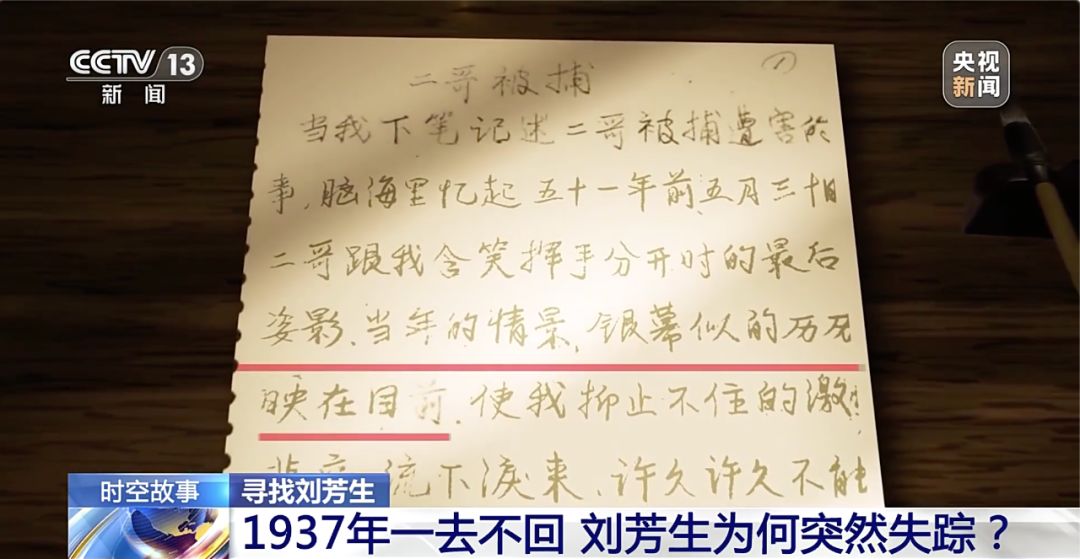 CCTV 13
新闻
央视
新闻
二哥被捕
(1)
当我下笔记述二哥被捕遭害的
事,脑海里忆起五十一年前五月三十日
二哥跟我含笑挥手分开时的最后
姿影、当年的情景,银幕似的历历
映在目前,使我抑止不住的激
流下泪来、许久许久不能
时空故事
寻找刘芳生
1937年一去不回 刘芳生为何突然失踪？